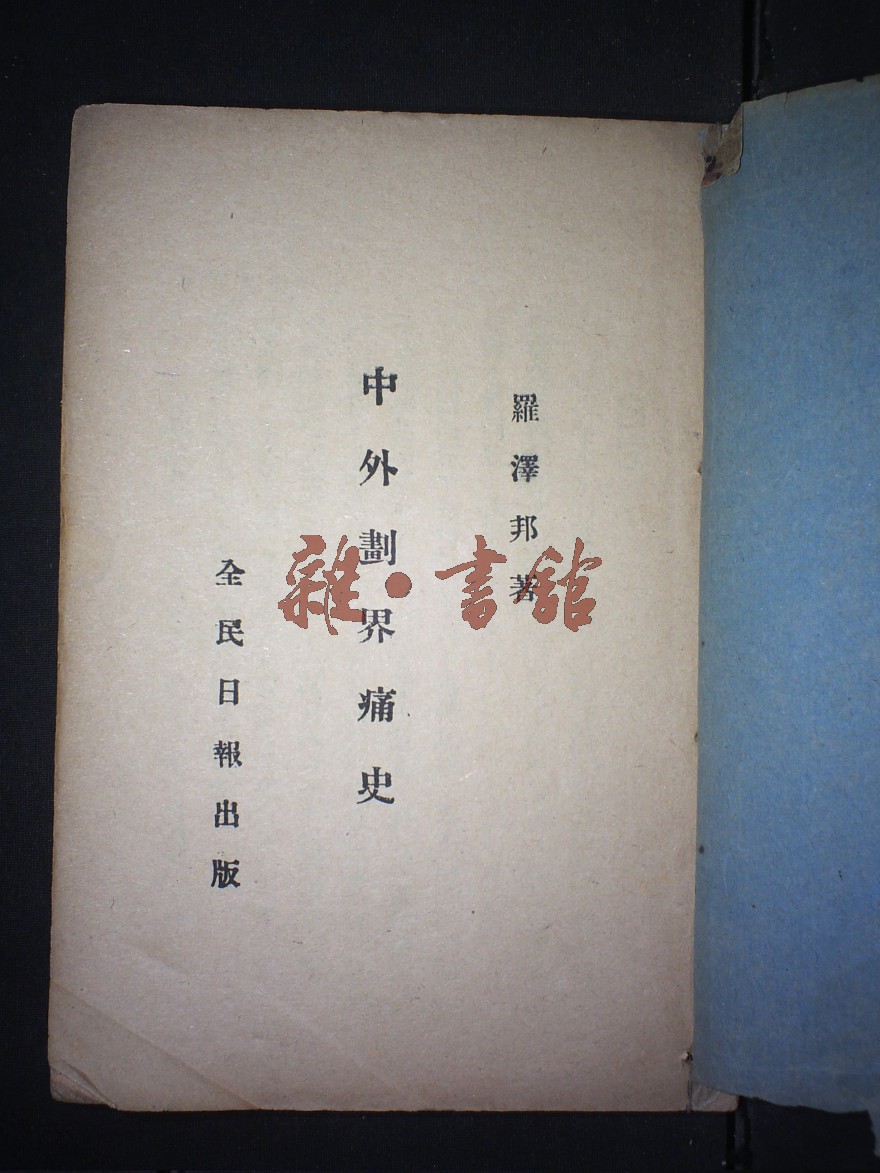 羅澤邦著
中外劃界痛史
全民日報出版
雜·書館